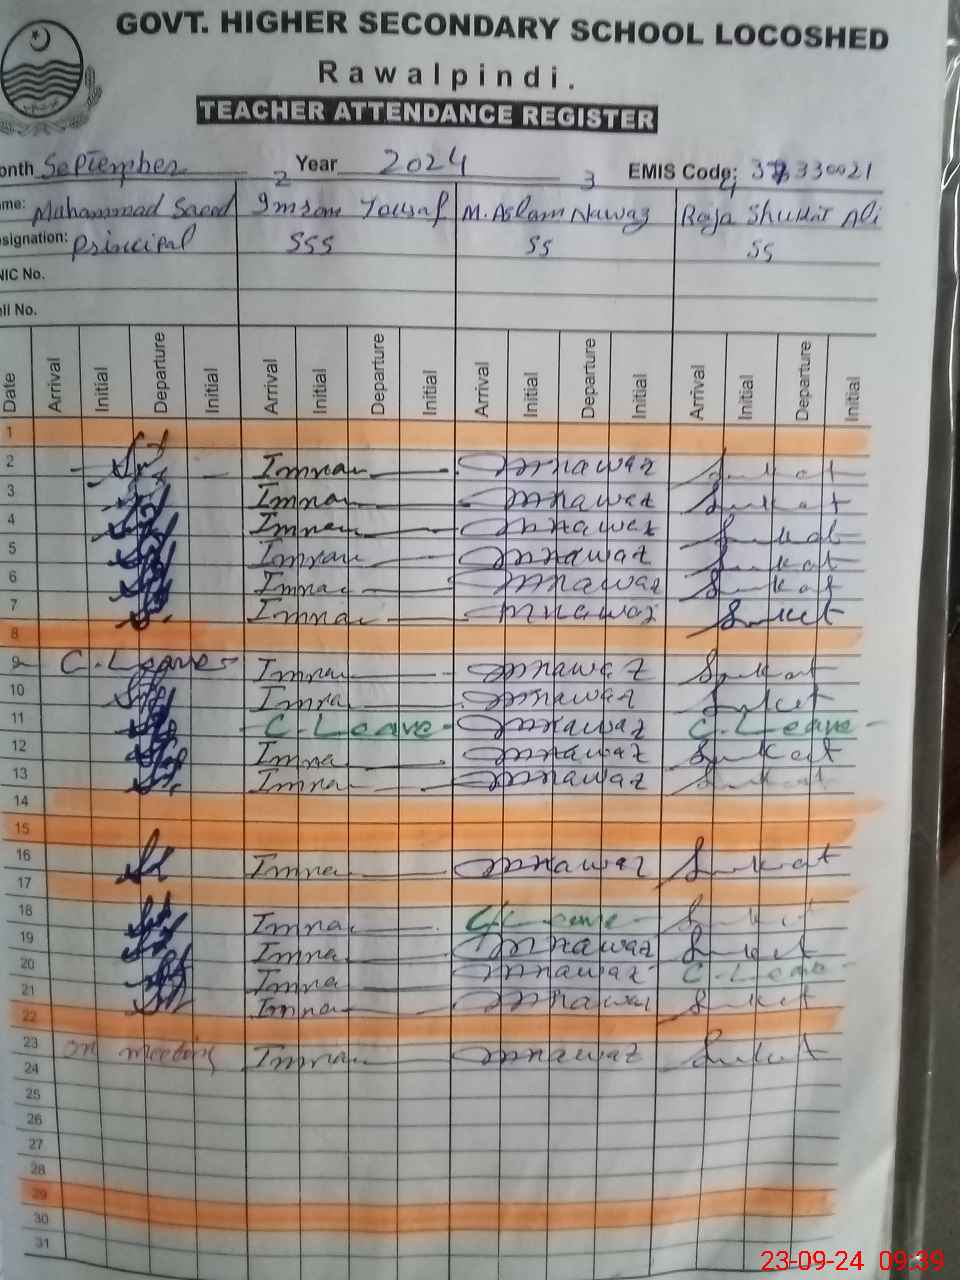 GOVT. HIGHER SECONDARY SCHOOL LOCOSHED
Rawalpindi.
TEACHER ATTENDANCE REGISTER
onth September Year 2024 EMIS Code: 330021
2 3 4
ame: Muhammad Saeed Imran Yousaf M. Aslam Nawaz Raja Shukat Ali
esignation: Principal SSS SS SS
NIC No.
ll No.
Date Arrival Initial Departure Initial Arrival Initial Departure Initial Arrival Initial Departure Initial Arrival Initial Departure Initial
1
2 Imran mnawaz Sukat
3 Imran mnawaz Sukat
4 Imran mnawaz Sukat
5 Imran mnawaz Sukat
6 Imran mnawaz Sukat
7 Imran mnawaz Sukat
8
9 C. Leave Imran mnawaz Sukat
10 Imra mnawaz Sukat
11 C. Leave mnawaz C. Leave
12 Imna mnawaz Sukat
13 Imna mnawaz Sukat
14
15
16 Imna mnawaz Sukat
17
18 Imna Leave Sukat
19 Imna mnawaz Sukat
20 Imna mnawaz C. Leave
21 Imna mnawaz Sukat
22
23 on meeting Imran mnawaz Sukat
24
25
26
27
28
29
30
31
23-09-24 09:39